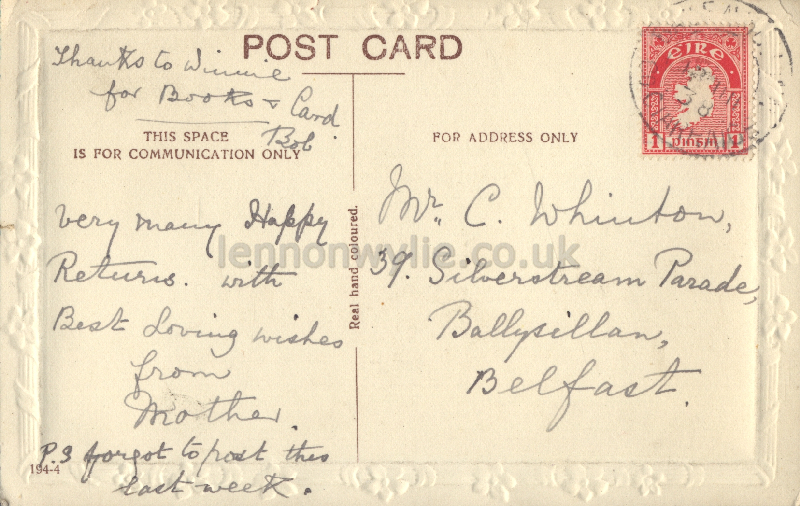 POST CARD
Thanks to Winnie
for Books & Card
Bob
THIS SPACE
IS FOR COMMUNICATION ONLY
Very many Happy
Returns. with
Best Loving wishes
from
Mother.
P.S forgot to post this
last week.
194-4
Real hand coloured.
FOR ADDRESS ONLY
Mr. C. Whinton,
39. Silverstream Parade,
Ballysillan,
Belfast.
éire
1 pinsin 1
38
lennonwylie.co.uk